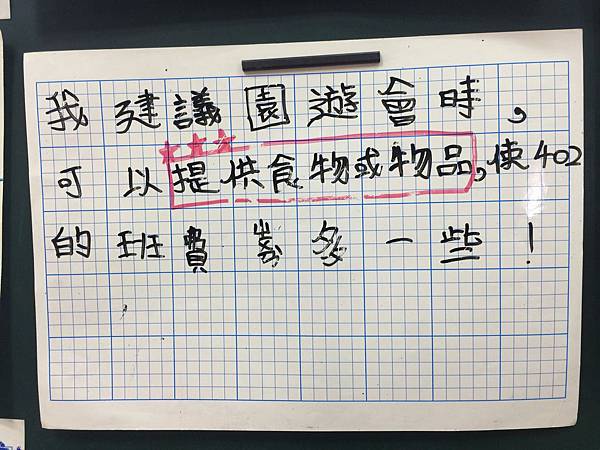 我建議園遊會時，
可以提供食物或物品，使402
的班費多一些！